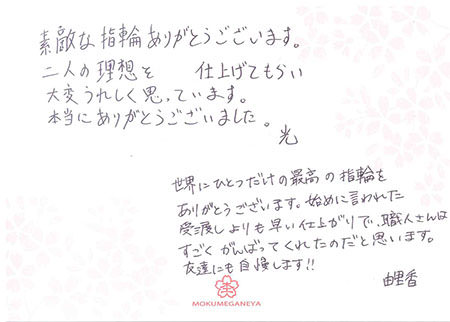 素敵な指輪ありがとうございます。
二人の理想を 仕上げてもらい
大変うれしく思っています。
本当にありがとうございました。
光
世界にひとつだけの最高の指輪を
ありがとうございます。始めに言われた
受渡しよりも早い仕上がりで、職人さんは
すごくがんばってくれたのだと思います。
友達にも自慢します!!
由里香
MOKUMEGANEYA